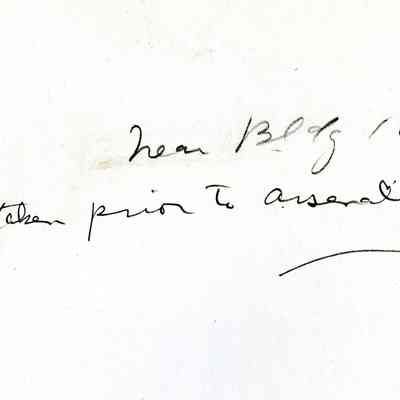 near Bldg 1
taken prior to arsenal